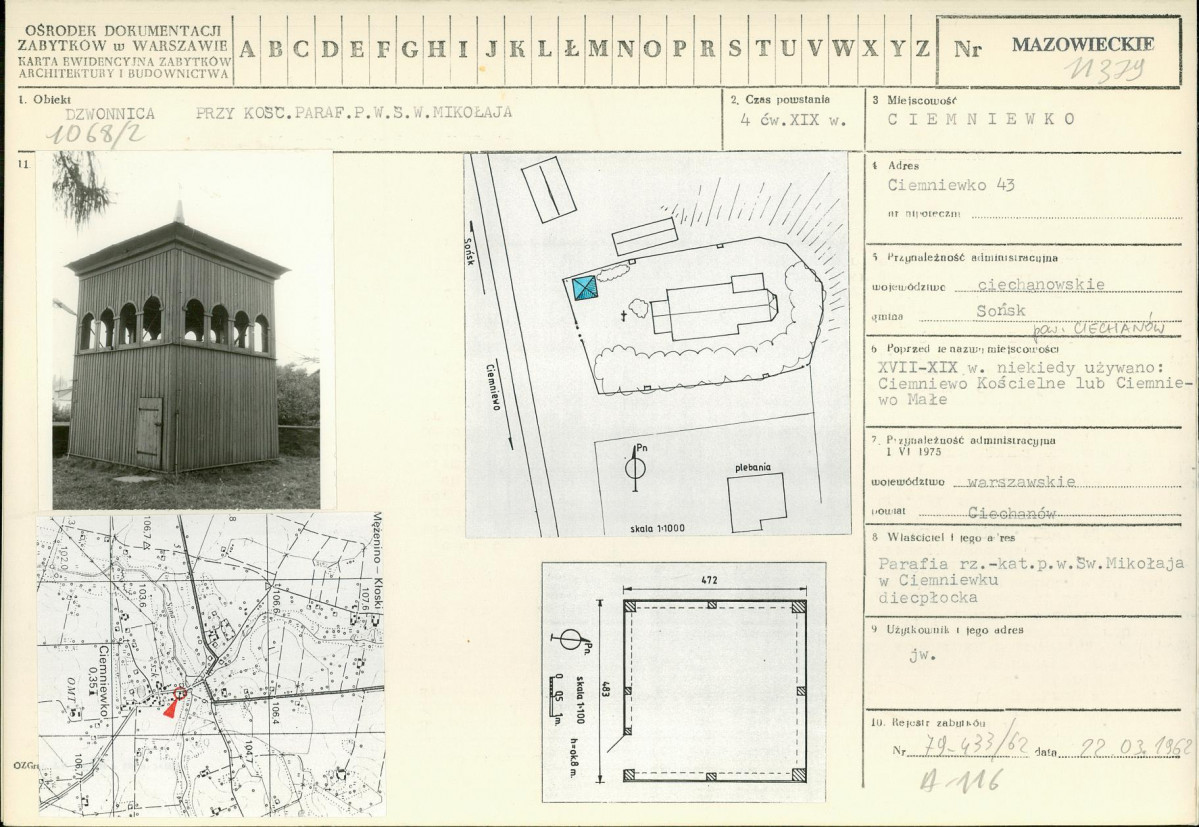 OŚRODEK DOKUMENTACJI
ZABYTKÓW w WARSZAWIE
KARTA EWIDENCYJNA ZABYTKÓW
ARCHITEKTURY I BUDOWNICTWA
A B C D E F G H I J K L Ł M N O P R S T U V W X Y Z
Nr MAZOWIECKIE
11379
1. Obiekt
DZWONNICA PRZY KOŚC.PARAF.P.W.Ś.W.MIKOŁAJA
1068/2
2. Czas powstania
4 ćw.XIX w.
3 Miejscowość
CIEMNIEWKO
11
4 Adres
Ciemniewko 43
nr hipoteczny
5 Przynależność administracyjna
województwo ciechanowskie
gmina Sońsk
pow. CIECHANÓW
6 Poprzednie nazwy miejscowości
XVII-XIX w. niekiedy używano:
Ciemniewo Kościelne lub Ciemnie-
wo Małe
7. Przynależność administracyjna
1 VI 1975
województwo warszawskie
powiat Ciechanów
8 Właściciel i jego adres
Parafia rz.-kat.p.w.Św.Mikołaja
w Ciemniewku
diecpłocka
9 Użytkownik i jego adres
jw.
10. Rejestr zabytków
Nr 79-433/62 data 22.03.1962
A-116
Sońsk
Ciemniewo
Pn
plebania
skala 1:1000
Mężenino-Kłoski
106.7
103.6
102.0
106.6
107.6
Ciemniewko
0,35
OMT
106.4
104.7
106.7
OZGr
472
483
Pn.
skala 1:100
0 05 1m.
h=ok.8m.